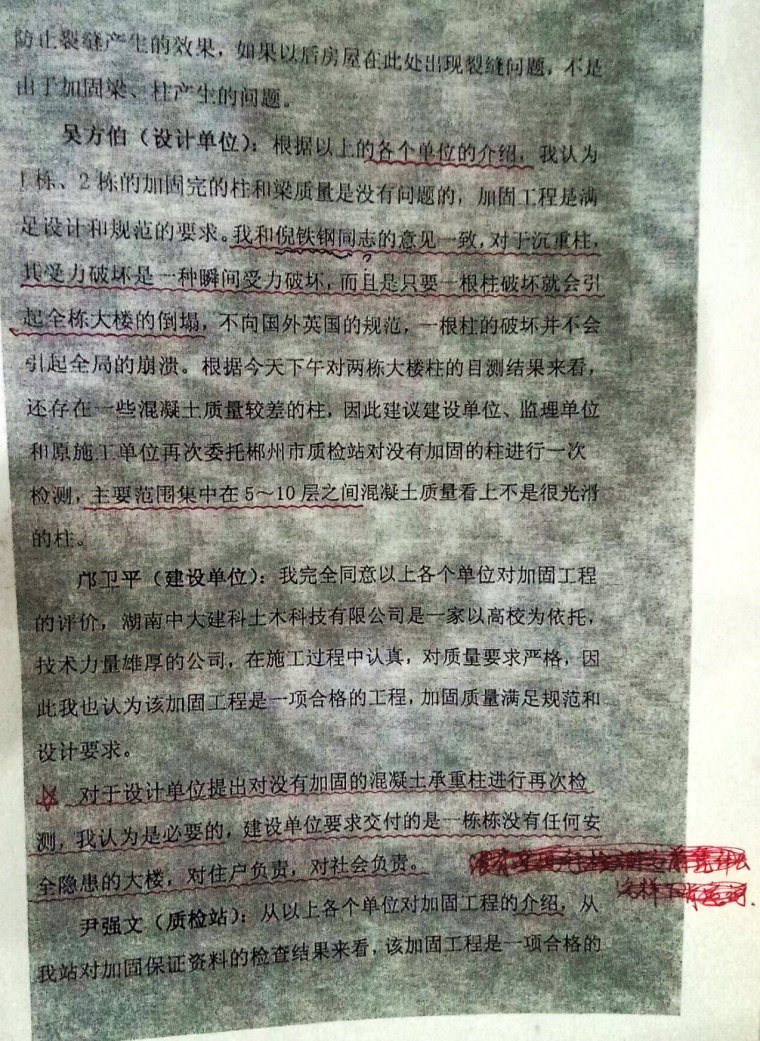 防止裂缝产生的效果，如果以后房屋在此处出现裂缝问题，不是
由于加固梁、柱产生的问题。
吴方伯（设计单位）：根据以上的各个单位的介绍，我认为
1栋、2栋的加固完的柱和梁质量是没有问题的，加固工程是满
足设计和规范的要求。我和倪铁钢同志的意见一致，对于沉重柱，
其受力破坏是一种瞬间受力破坏，而且是只要一根柱破坏就会引
起全栋大楼的倒塌，不向国外英国的规范，一根柱的破坏并不会
引起全局的崩溃。根据今天下午对两栋大楼柱的目测结果来看，
还存在一些混凝土质量较差的柱，因此建议建设单位、监理单位
和原施工单位再次委托郴州市质检站对没有加固的柱进行一次
检测，主要范围集中在5～10层之间混凝土质量看上不是很光滑
的柱。
邝卫平（建设单位）：我完全同意以上各个单位对加固工程
的评价，湖南中大建科土木科技有限公司是一家以高校为依托，
技术力量雄厚的公司，在施工过程中认真，对质量要求严格，因
此我也认为该加固工程是一项合格的工程，加固质量满足规范和
设计要求。
对于设计单位提出对没有加固的混凝土承重柱进行再次检
测，我认为是必要的，建设单位要求交付的是一栋栋没有任何安
全隐患的大楼，对住户负责，对社会负责。
尹强文（质检站）：从以上各个单位对加固工程的介绍，从
我站对加固保证资料的检查结果来看，该加固工程是一项合格的